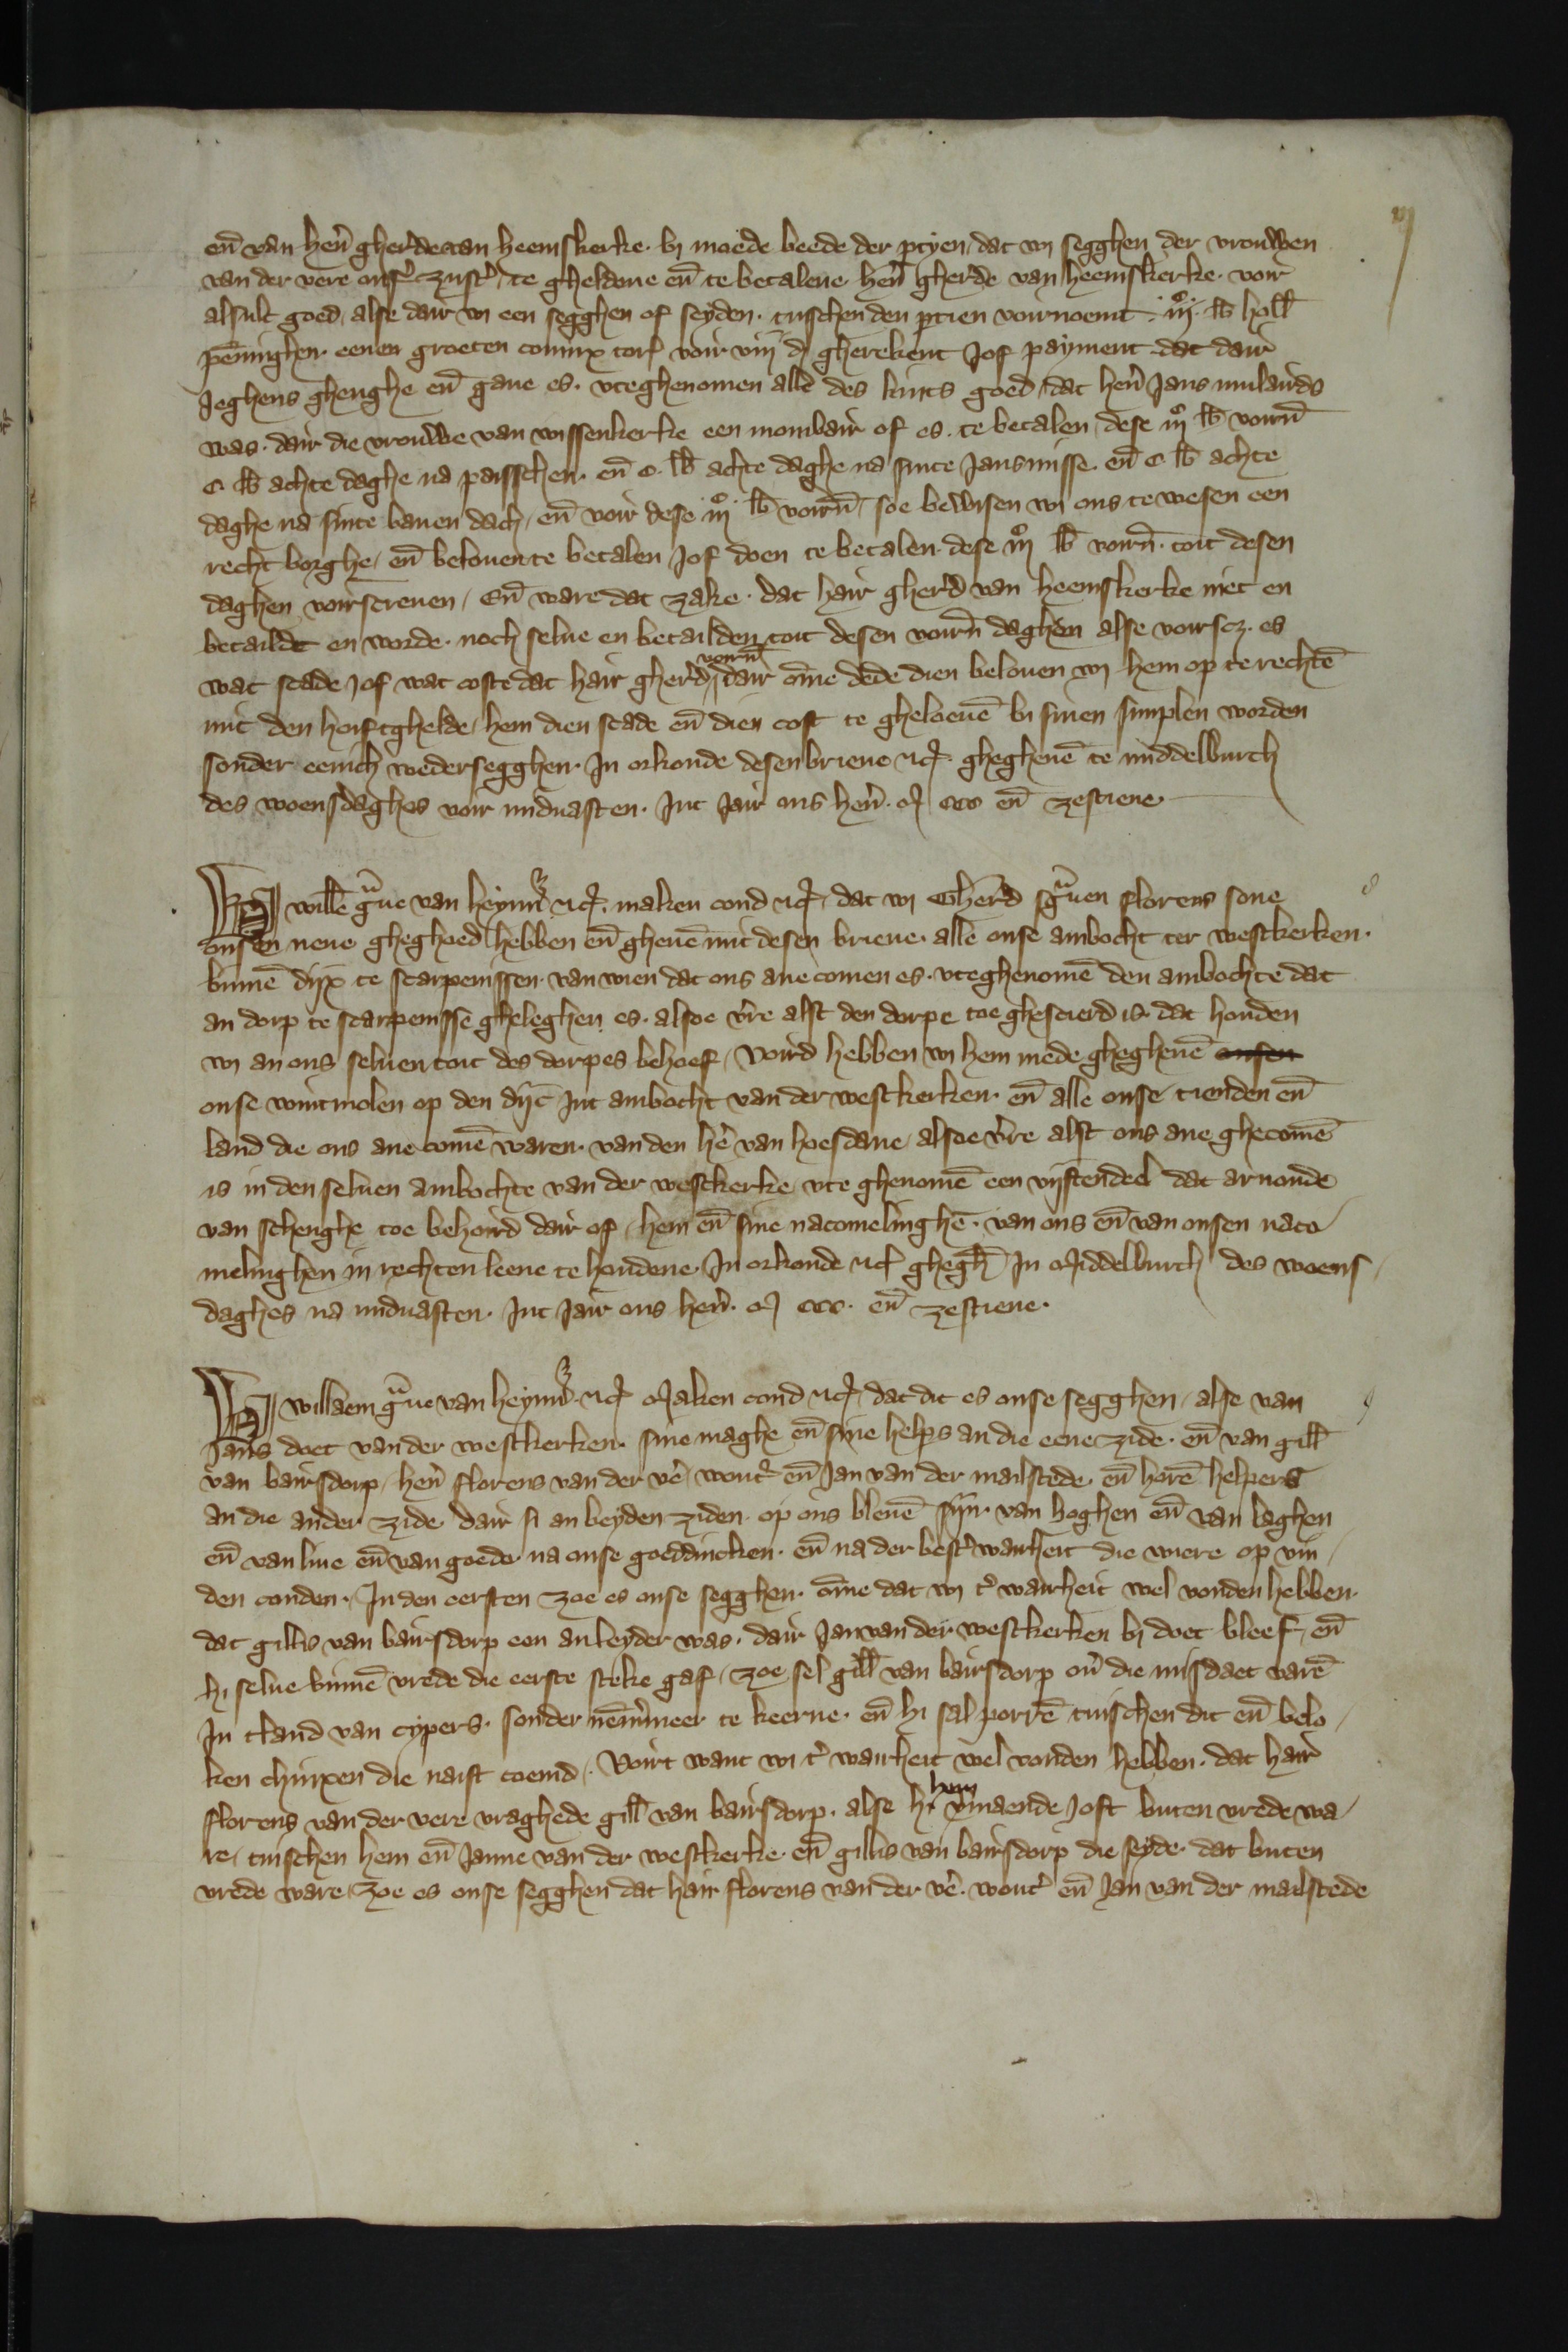 vij
en̄ van her̄ gherde van heemskerke. bi moede beede der p̱tyen, dat wi segghen der vrouwen
van der vere onſ̉ zuſt̉, te gheldene en̄ te betalene her̄ gherde van heemskerke. voir
alsulc goed, alse dair wi een segghen of seyden. tusschen den p̱tien voirnoemt .iijᶜ. lb holl̄
pēninghen. eenen groeten coninx torſ voir viij d̄ gherekent Jof payment dat dair
Jeghens ghenghe en̄ gaue es. vteghenomen alle des kints goed, dat her̄ Jans mulairds
was. dair die vrouwe van wissenkerke een mombair of es. te betalen dese iijᶜ lb voirn̄
C. lb achte daghe na paisschen. en̄ C. lb achte daghe na sinte Jansmisse. en̄ C lb achte
daghe na sinte bauen dach, en̄ voir dese iijᶜ lb voirn̄, soe bewisen wi ons te wesen een
recht borghe, en̄ belouen te betalen Jof doen te betalen. dese iijᶜ lb voirn̄. toit desen
daghen voirscreuen, En̄ ware dat zake. dat hair gherd van heemskerke niet en
betaildt en worde. noch selue en betailden toit desen voirn̄ daghen alse voirscꝫ. es
voirn̄
wat scade Jof wat coste dat hair gherd, dair om̄e dede dien belouen wi hem op te rechtē
mit den hoiftghelde, hem dien scade en̄ dien cost te gheloeuē bi sinen simplen worden
sonder eenich wedersegghen. In orkonde desen brieue ⁊cꝭ. gheghenē te middelburch
des woensdaghes voir miduasten. Int Jair ons her̄. M CCC en̄ zestiene.
Wi willē gͧue van heyn̄ ⁊cꝭ. maken cond ⁊cꝭ, dat wi Gherd sgͧuen florens sone
8
onsen neue gheghoed hebben en̄ gheuē mit desen brieue. alle onse ambocht ter westkerken.
binnē dijx te scarpenissen. van wien dat ons ane comen es. vteghenomē den ambochte dat
an dorp te scarpenisse gheleghen es. alsoe v̉re alst den dorpe toe ghescierd is. dat houden
wi an ons seluen toit des dorpes behoef, Voird hebben wi hem mede ghegheuē onsen
onse wintmolen op den dijc Int ambocht van der westkerken. en̄ alle onse tienden en̄
land die ons ane comē waren. van den hē van hoesdane, alsoe v̉re alst ons ane ghecomē
is in den seluen ambochte van der westkerke, vte ghenomē een vijftendeel dat arnoude
van schenghe toe behoird dair of, hem en̄ sine nacomelinghē. van ons en̄ van onsen naco
melinghen in rechten leene te houdene. In orkonde ⁊cꝭ ghegh̄ In Middelburch des woens
daghes na miduasten. Int Jair ons her̄. M CCC. en̄ zestiene.
Wi willaem gͧue van heyn̄ ⁊cꝭ Maken cond ⁊cꝭ, dat dit es onse segghen, alse van
9
Jans doet van der westkerken. sine maghe en̄ sine helps an die eene zide. en̄ van gill̄
van bairsdorp, her̄ florens van der vē, wout̉ en̄ Jan van der mailstede. en̄ horē helpers
an die ander zide. dair si an beyden ziden. op ons bleuē sijn. van hoghen en̄ van laghen
en̄ van liue en̄ van goede. na onse goeddincken. en̄ na der best̉ wairheit die wiere op vin
den conden. In den eersten zoe es onse segghen. om̄e dat wi t̉ wairheit wel vonden hebben.
dat gillis van bairsdorp een anleyder was. dair Jan van der westkerken bi doet bleef, en̄
hi selue binnē vrede die eerste steke gaf, zoe sel gill̄ van bairsdorp oủ die misdaet varē
In tland van cypers. sonder nēm̉meer te keerne. en̄ hi sal porrē tusschen dit en̄ belo
ken chinxen die naist coemd. Voirt want wi t̉ wairheit wel vonden hebben. dat hair
hem
florens van der vere vraghede gill̄ van bairsdorp. alse hi v̉maende Joft buten vrede wa
re, tusschen hem en̄ Janne van der westkerke. en̄ gillis van bairsdorp die seyde. dat buten
vrede ware, zoe es onse segghen dat hair florens van der vē. wout̉ en̄ Jan van der mailstede